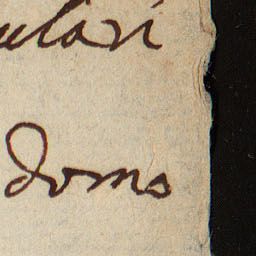 ulari
domo